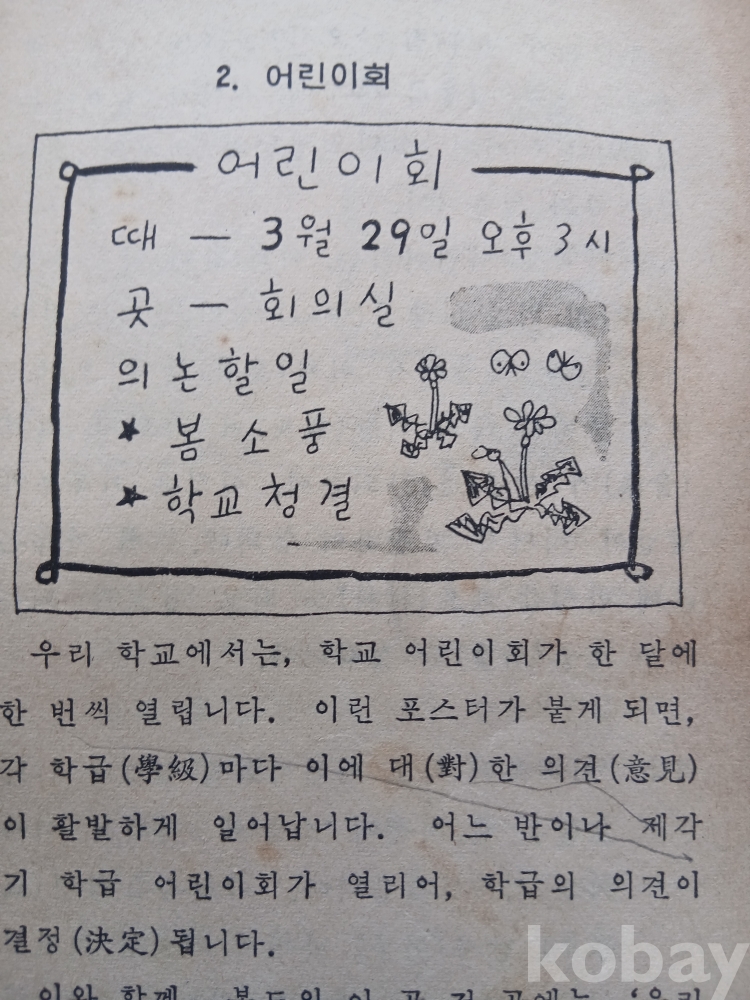 2. 어린이회
어린이회
때 — 3월 29일 오후 3시
곳 — 회의실
의논할일
★ 봄 소풍
★ 학교청결
우리 학교에서는, 학교 어린이회가 한 달에
한 번씩 열립니다. 이런 포스터가 붙게 되면,
각 학급(學級)마다 이에 대(對)한 의견(意見)
이 활발하게 일어납니다. 어느 반이나 제각
기 학급 어린이회가 열리어, 학급의 의견이
결정(決定)됩니다.
kobay